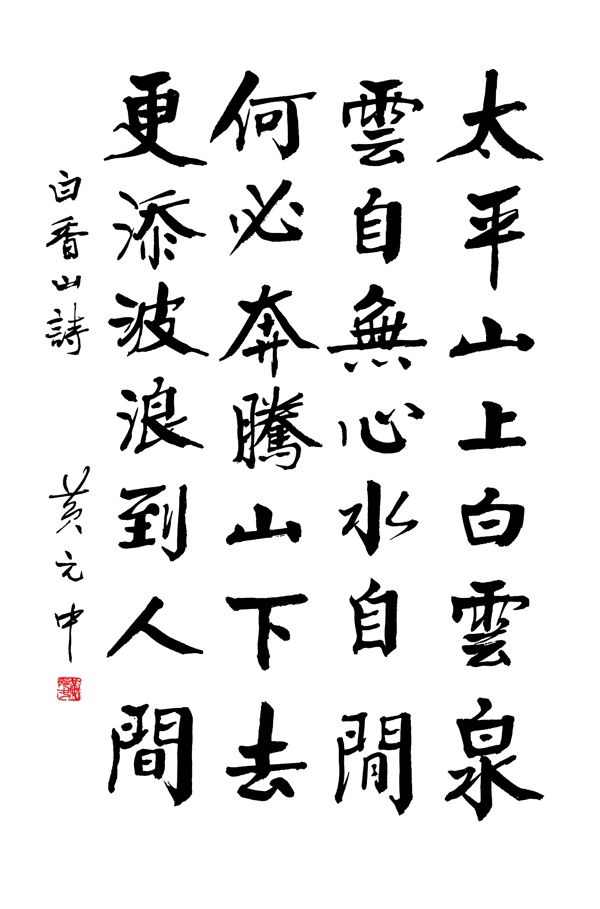 太平山上白雲泉
雲自無心水自閒
何必奔騰山下去
更添波浪到人間
白香山詩 黃元中